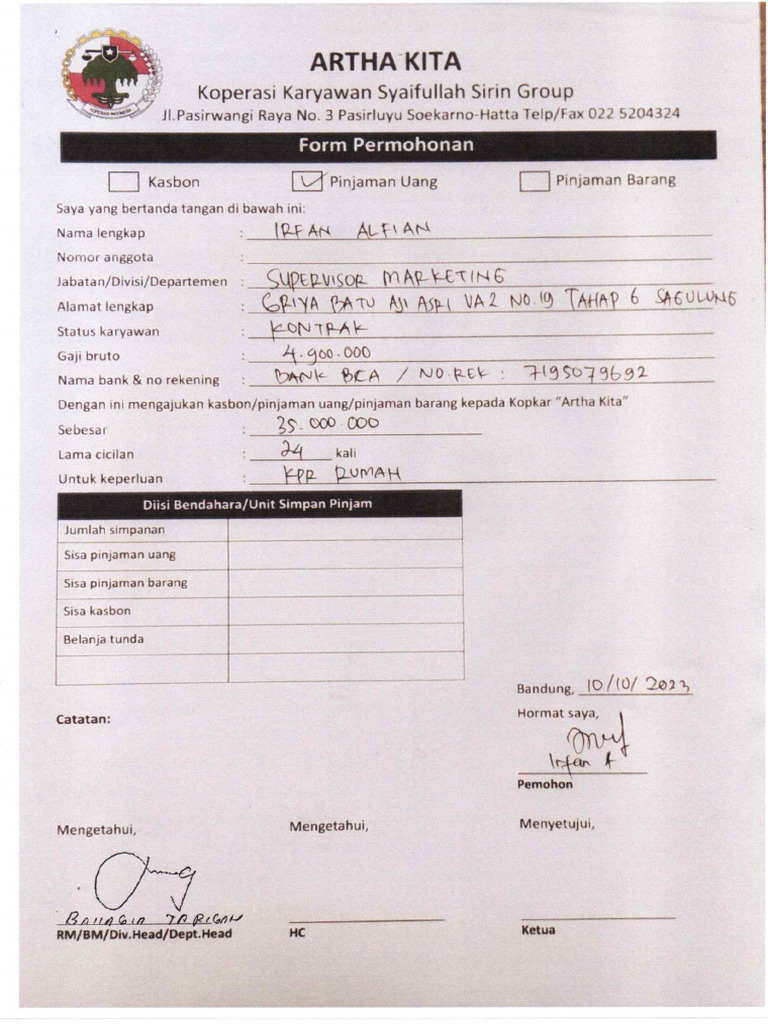 KOPERASI INDONESIA
ARTHA KITA
Koperasi Karyawan Syaifullah Sirin Group
Jl.Pasirwangi Raya No. 3 Pasirluyu Soekarno-Hatta Telp/Fax 022 5204324
Form Permohonan
Kasbon Pinjaman Uang Pinjaman Barang
Saya yang bertanda tangan di bawah ini:
Nama lengkap : IRFAN ALFIAN
Nomor anggota :
Jabatan/Divisi/Departemen : SUPERVISOR MARKETING
Alamat lengkap : GRIYA BATU AJI ASRI VA2 NO.19 TAHAP 6 SAGULUNG
Status karyawan : KONTRAK
Gaji bruto : 4.900.000
Nama bank & no rekening : BANK BCA / NO.REK : 7195079692
Dengan ini mengajukan kasbon/pinjaman uang/pinjaman barang kepada Kopkar "Artha Kita"
Sebesar : 35.000.000
Lama cicilan : 24 kali
Untuk keperluan : KPR RUMAH
Diisi Bendahara/Unit Simpan Pinjam
Jumlah simpanan
Sisa pinjaman uang
Sisa pinjaman barang
Sisa kasbon
Belanja tunda
Bandung, 10/10/2023
Catatan:
Hormat saya,
Irfan A
Pemohon
Mengetahui, Mengetahui, Menyetujui,
BAHAGIA TARIGAN
RM/BM/Div.Head/Dept.Head HC Ketua